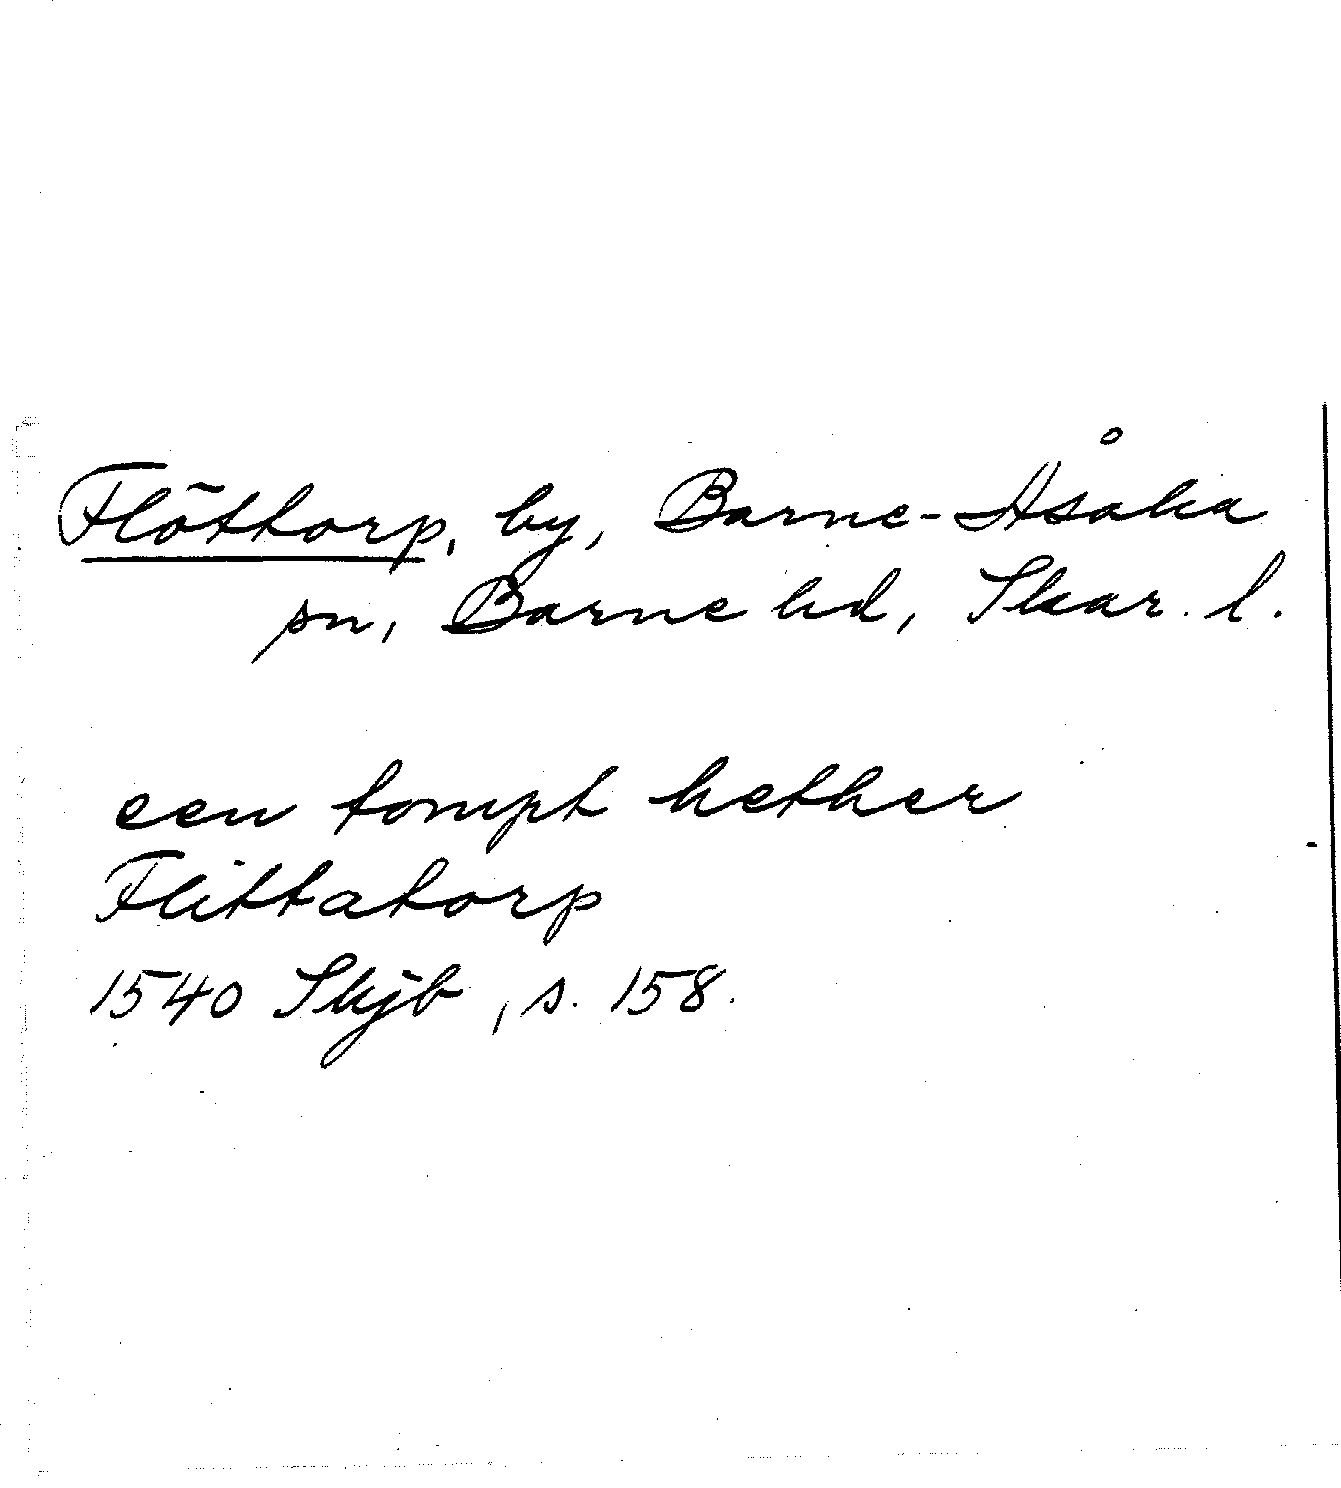 Flöttorp, by, Barne-Åsaka
sn, Barne hd, Skar. l.
een tompt hether
Flittatorp
1540 Skjb, s. 158.